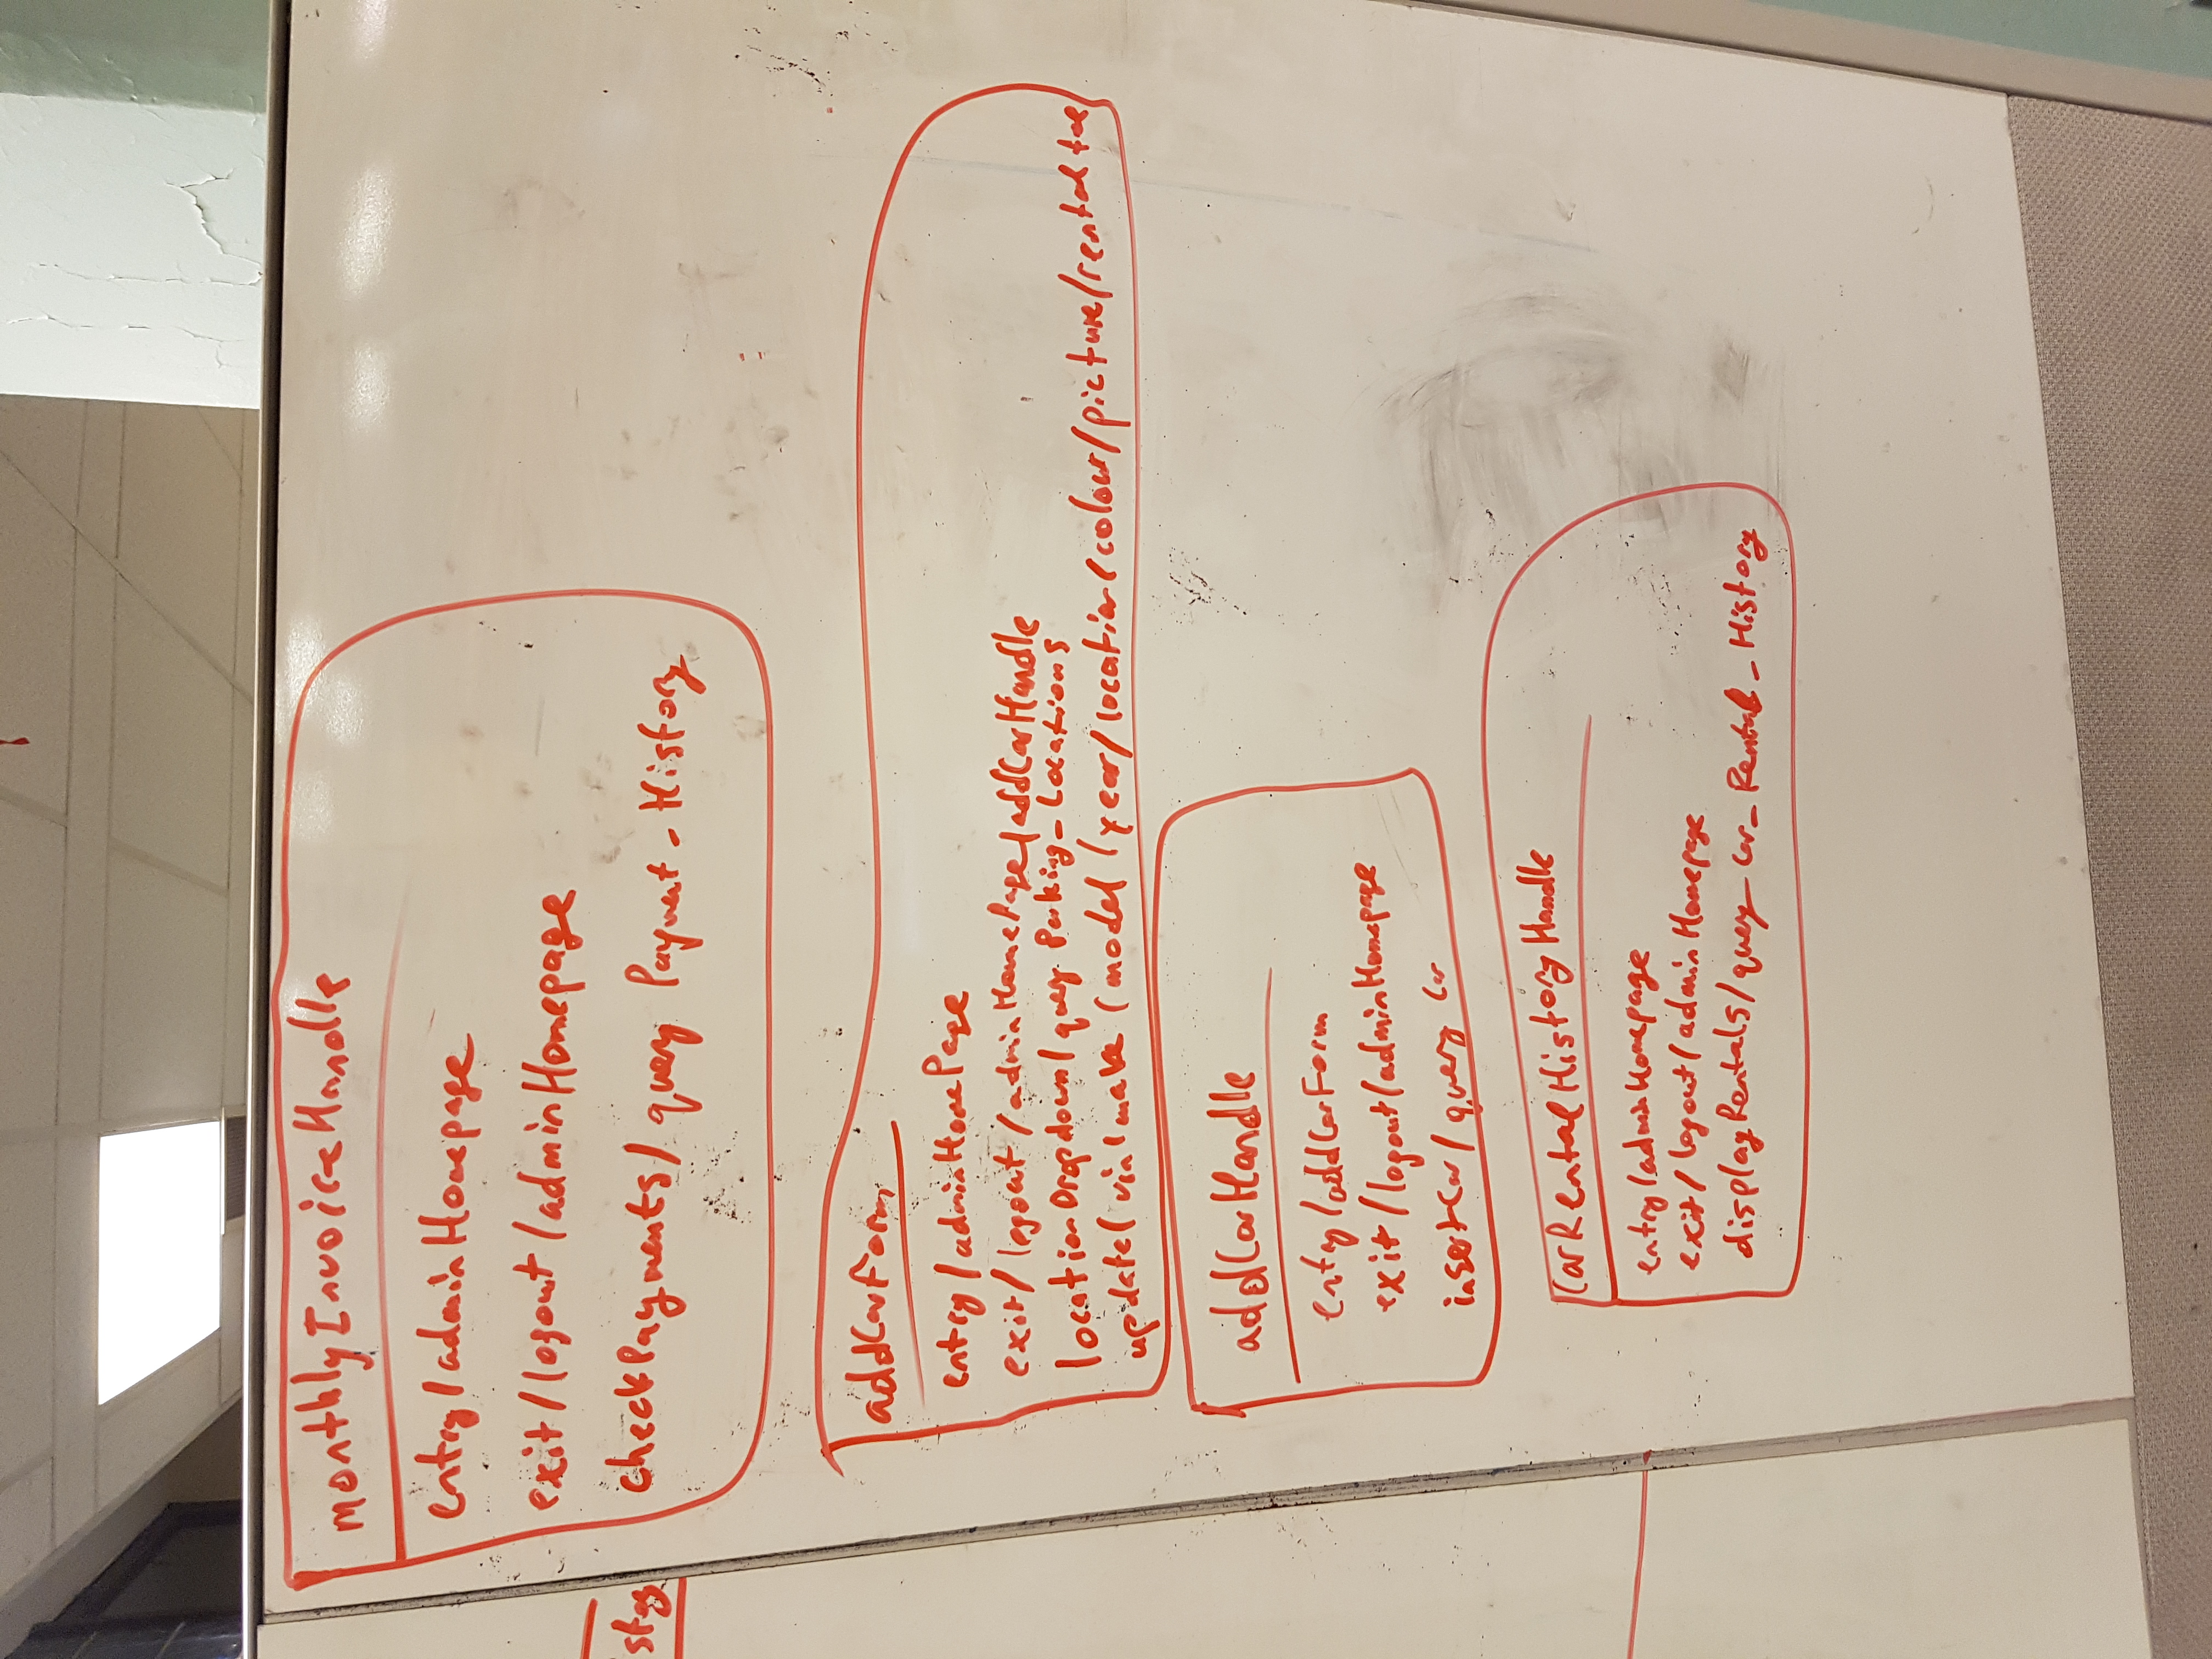 monthlyInvoiceHandle
entry/adminHomepage
exit/logout/adminHomepage
checkPayments/query Payment_History
addCarForm
entry/adminHomePage
exit/logout/adminHomePage/addCarHandle
locationDropdown/query Parking_Locations
update/vin/make/model/year/location/colour/picture/rental
addCarHandle
entry/addCarForm
exit/logout/adminHomepage
insertCar/query Car
CarRentalHistoryHandle
entry/adminHomepage
exit/logout/adminHomepage
displayRentals/query Car_Rental_History